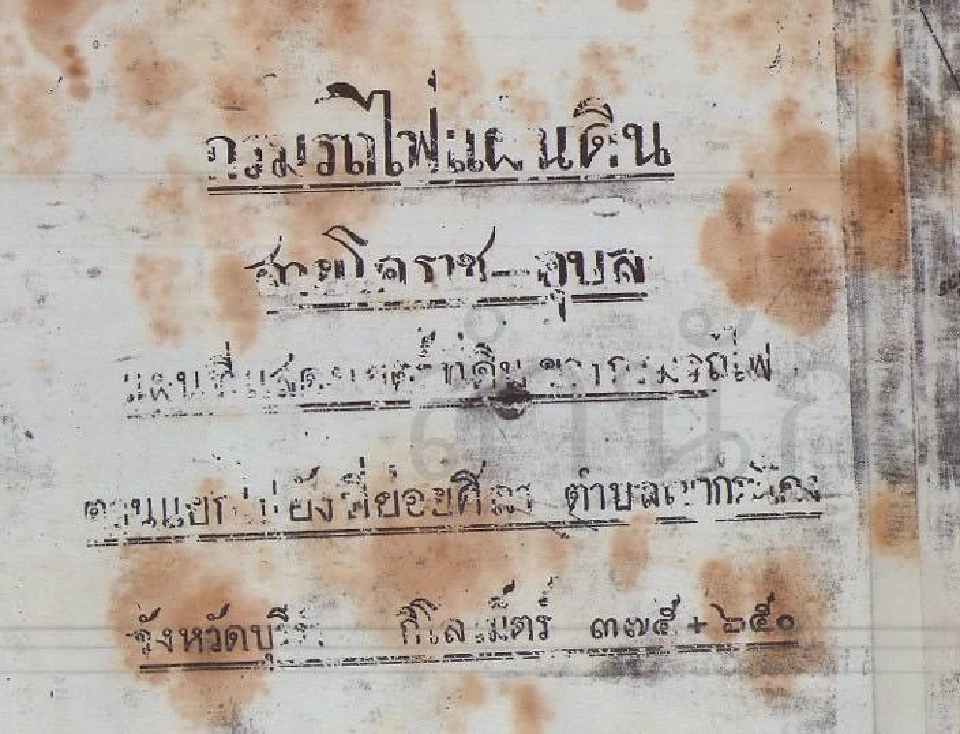 กรมรถไฟแผ่นดิน
สายโคราช–อุบล
แผนที่แสดงเขตร์ที่ดินของกรมรถไฟ
ตอนแยกไปยังที่ย่อยศิลา ตำบล
จังหวัดบุรีรัมย์ กิโลเม็ตร์ ๓๗๕+๒๕๐